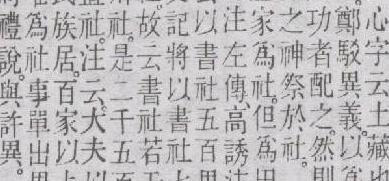 心字云土藏
鄭駁異義以為
功者配之然則
之神祭於社
家為社但為田
注左傳高誘注
以書社五百里
記將以書社七
故云書社若
社是二千五
社注云大夫以
民族居百家以上
為社事單出里
禮說與許異